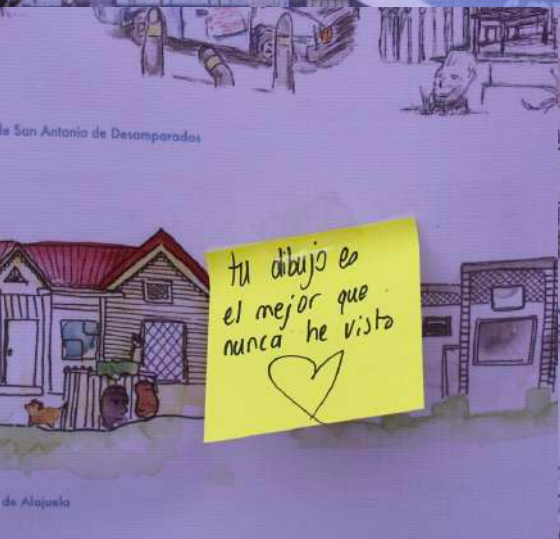 de San Antonio de Desamparados
tu dibujo es
el mejor que
nunca he visto
de Alajuela